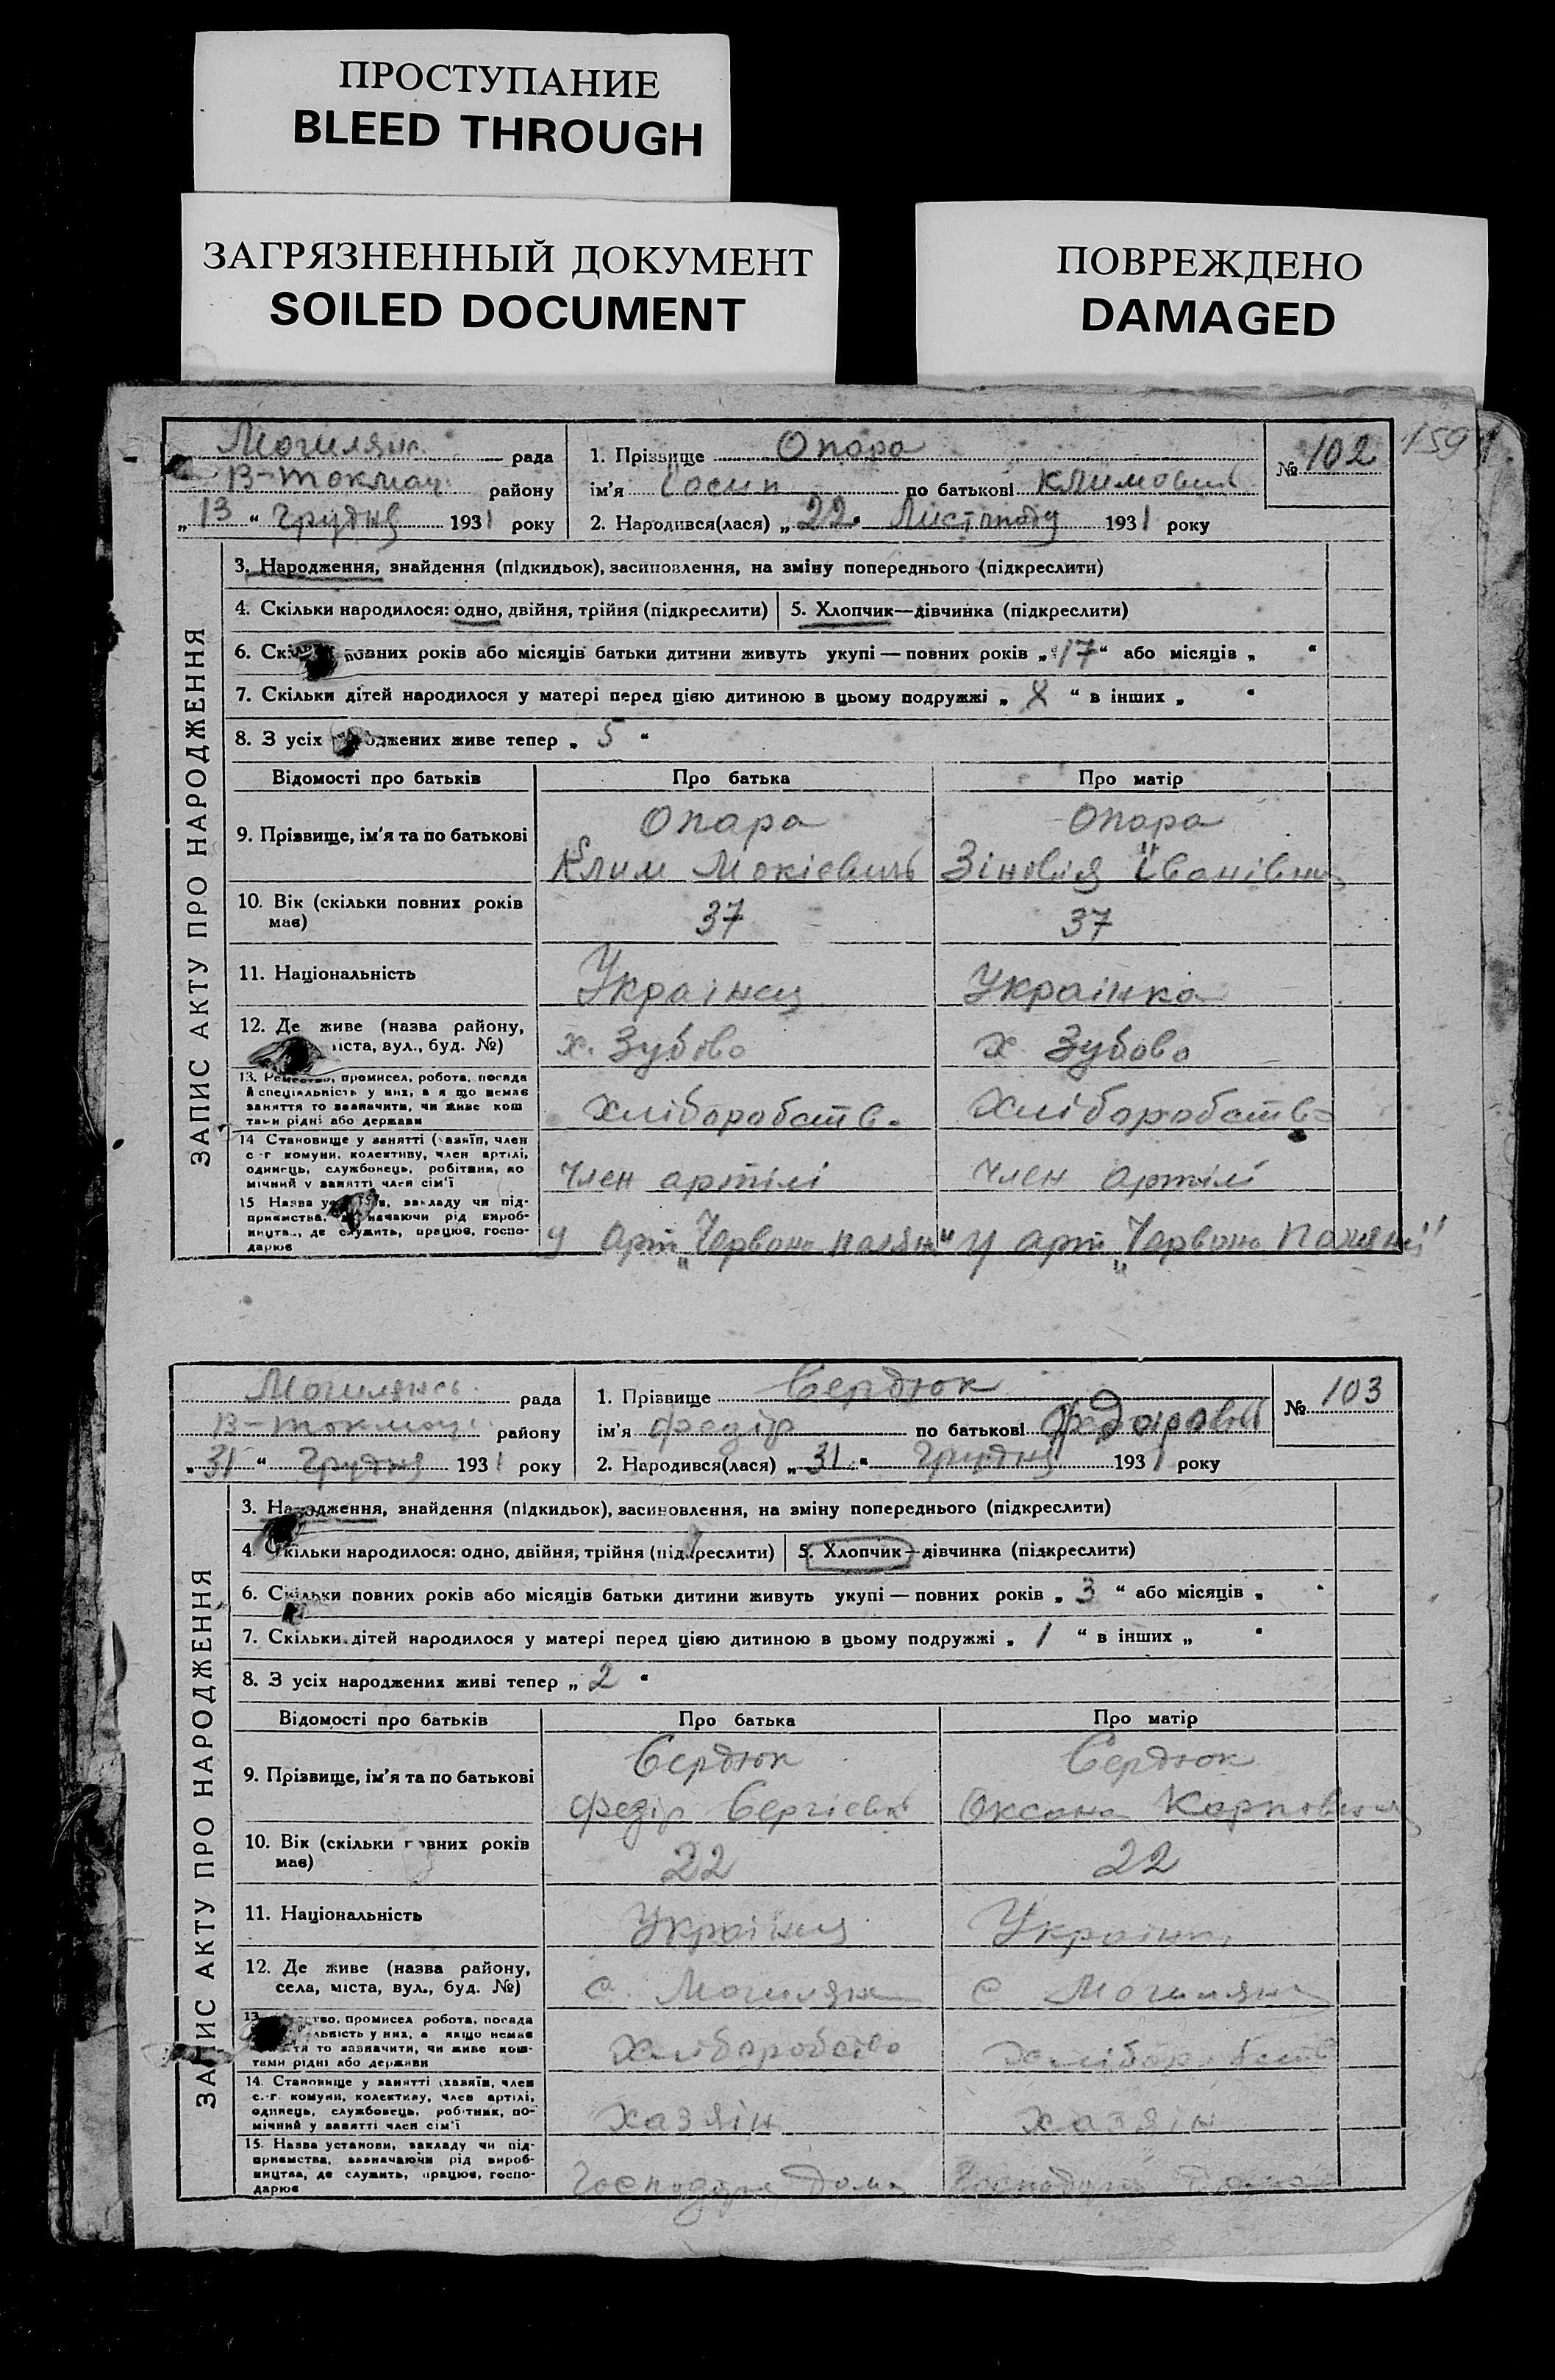 ПРОСТУПАНИЕ
BLEED THROUGH
ЗАГРЯЗНЕННЫЙ ДОКУМЕНТ
SOILED DOCUMENT
ПОВРЕЖДЕНО
DAMAGED
Могилянс. рада
В-Токмац. району
„ 13 “ Грудня 1931 року
1. Прізвище Опара
ім'я Йосип по батькові Климович
2. Народився(лася) „ 22 “ Листопаду 1931 року
№ 102
159
ЗАПИС АКТУ ПРО НАРОДЖЕННЯ
3. Народження, знайдення (підкидьок), засиновлення, на зміну попереднього (підкреслити)
4. Скільки народилося: одно, двійня, трійня (підкреслити) 5. Хлопчик—дівчинка (підкреслити)
6. Скільки повних років або місяців батьки дитини живуть укупі — повних років „ 17 “ або місяців „ “
7. Скільки дітей народилося у матері перед цією дитиною в цьому подружжі „ “ в інших „ “
8. З усіх народжених живе тепер „ 5 “
Відомості про батьків Про батька Про матір
9. Прізвище, ім'я та по батькові
Опара Опара
Клим Мокієвич Зіновія Іванівна
10. Вік (скільки повних років має) 37 37
11. Національність Українец Українка
12. Де живе (назва району, міста, вул., буд. №) х. Зубово х Зубово
13. Ремество, промисел, робота, посада
й спеціяльність у них, а я що немає
заняття то зазначити, чи живе кош
тами рідні або держави
Хліборобств. Хліборобств
14 Становище у занятті (хазяїн, член
с.-г комуни, колективу, член артілі,
одинець, службонець, робітник, по
мічний у занятті член сім'ї
Член артілі Член артілі
15 Назва установи, закладу чи під-
приємства, зазначаючи рід вироб-
ництва, де служить, працює, госпо-
дарює
у арт „Червоно поляна“ у арт „Червоно Поляни“
Могилянсь. рада
В-Токмац. району
„ 31 “ Грудня 1931 року
1. Прізвище Сердюк
ім'я Федір по батькові Федорович
2. Народився(лася) „ 31 “ Грудня 1931 року
№ 103
ЗАПИС АКТУ ПРО НАРОДЖЕННЯ
3. Народження, знайдення (підкидьок), засиновлення, на зміну попереднього (підкреслити)
4. Скільки народилося: одно, двійня, трійня (підкреслити) 5. Хлопчик—дівчинка (підкреслити)
6. Скільки повних років або місяців батьки дитини живуть укупі — повних років „ 3 “ або місяців „ “
7. Скільки дітей народилося у матері перед цією дитиною в цьому подружжі „ 1 “ в інших „ “
8. З усіх народжених живі тепер „ 2 “
Відомості про батьків Про батька Про матір
9. Прізвище, ім'я та по батькові
Сердюк Сердюк
Федір Сергієвич Оксана Карповна
10. Вік (скільки повних років має) 22 22
11. Національність Українец Українка
12. Де живе (назва району, села, міста, вул., буд. №) с. Могиляни с Могиляни
13. промисел робота, посада
у них, а якщо немає
то зазначити, чи живе кош-
тами рідні або держави
Хліборобство Хліборобств
14. Становище у занятті хазяїн, член
с.-г. комуни, колективу, член артілі,
одинець, службовець, робітник, по-
мічний у занятті член сім'ї
хазяін хазяін
15. Назва установи, закладу чи під-
приємства, зазначаючи рід вироб-
ництва, де служить, працює, госпо-
дарює
Господарює дома Господарює дома